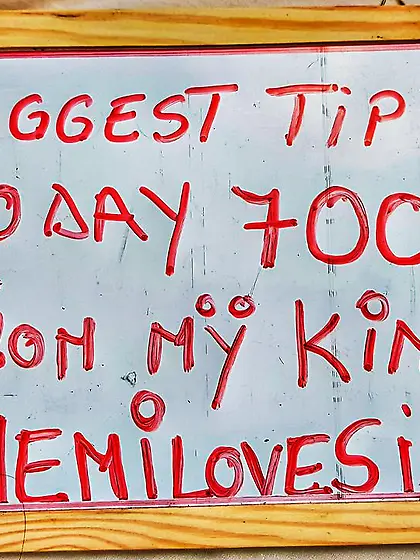 GGEST TiP
DAY 700
OH MŸ KiN
EMiLOVESi